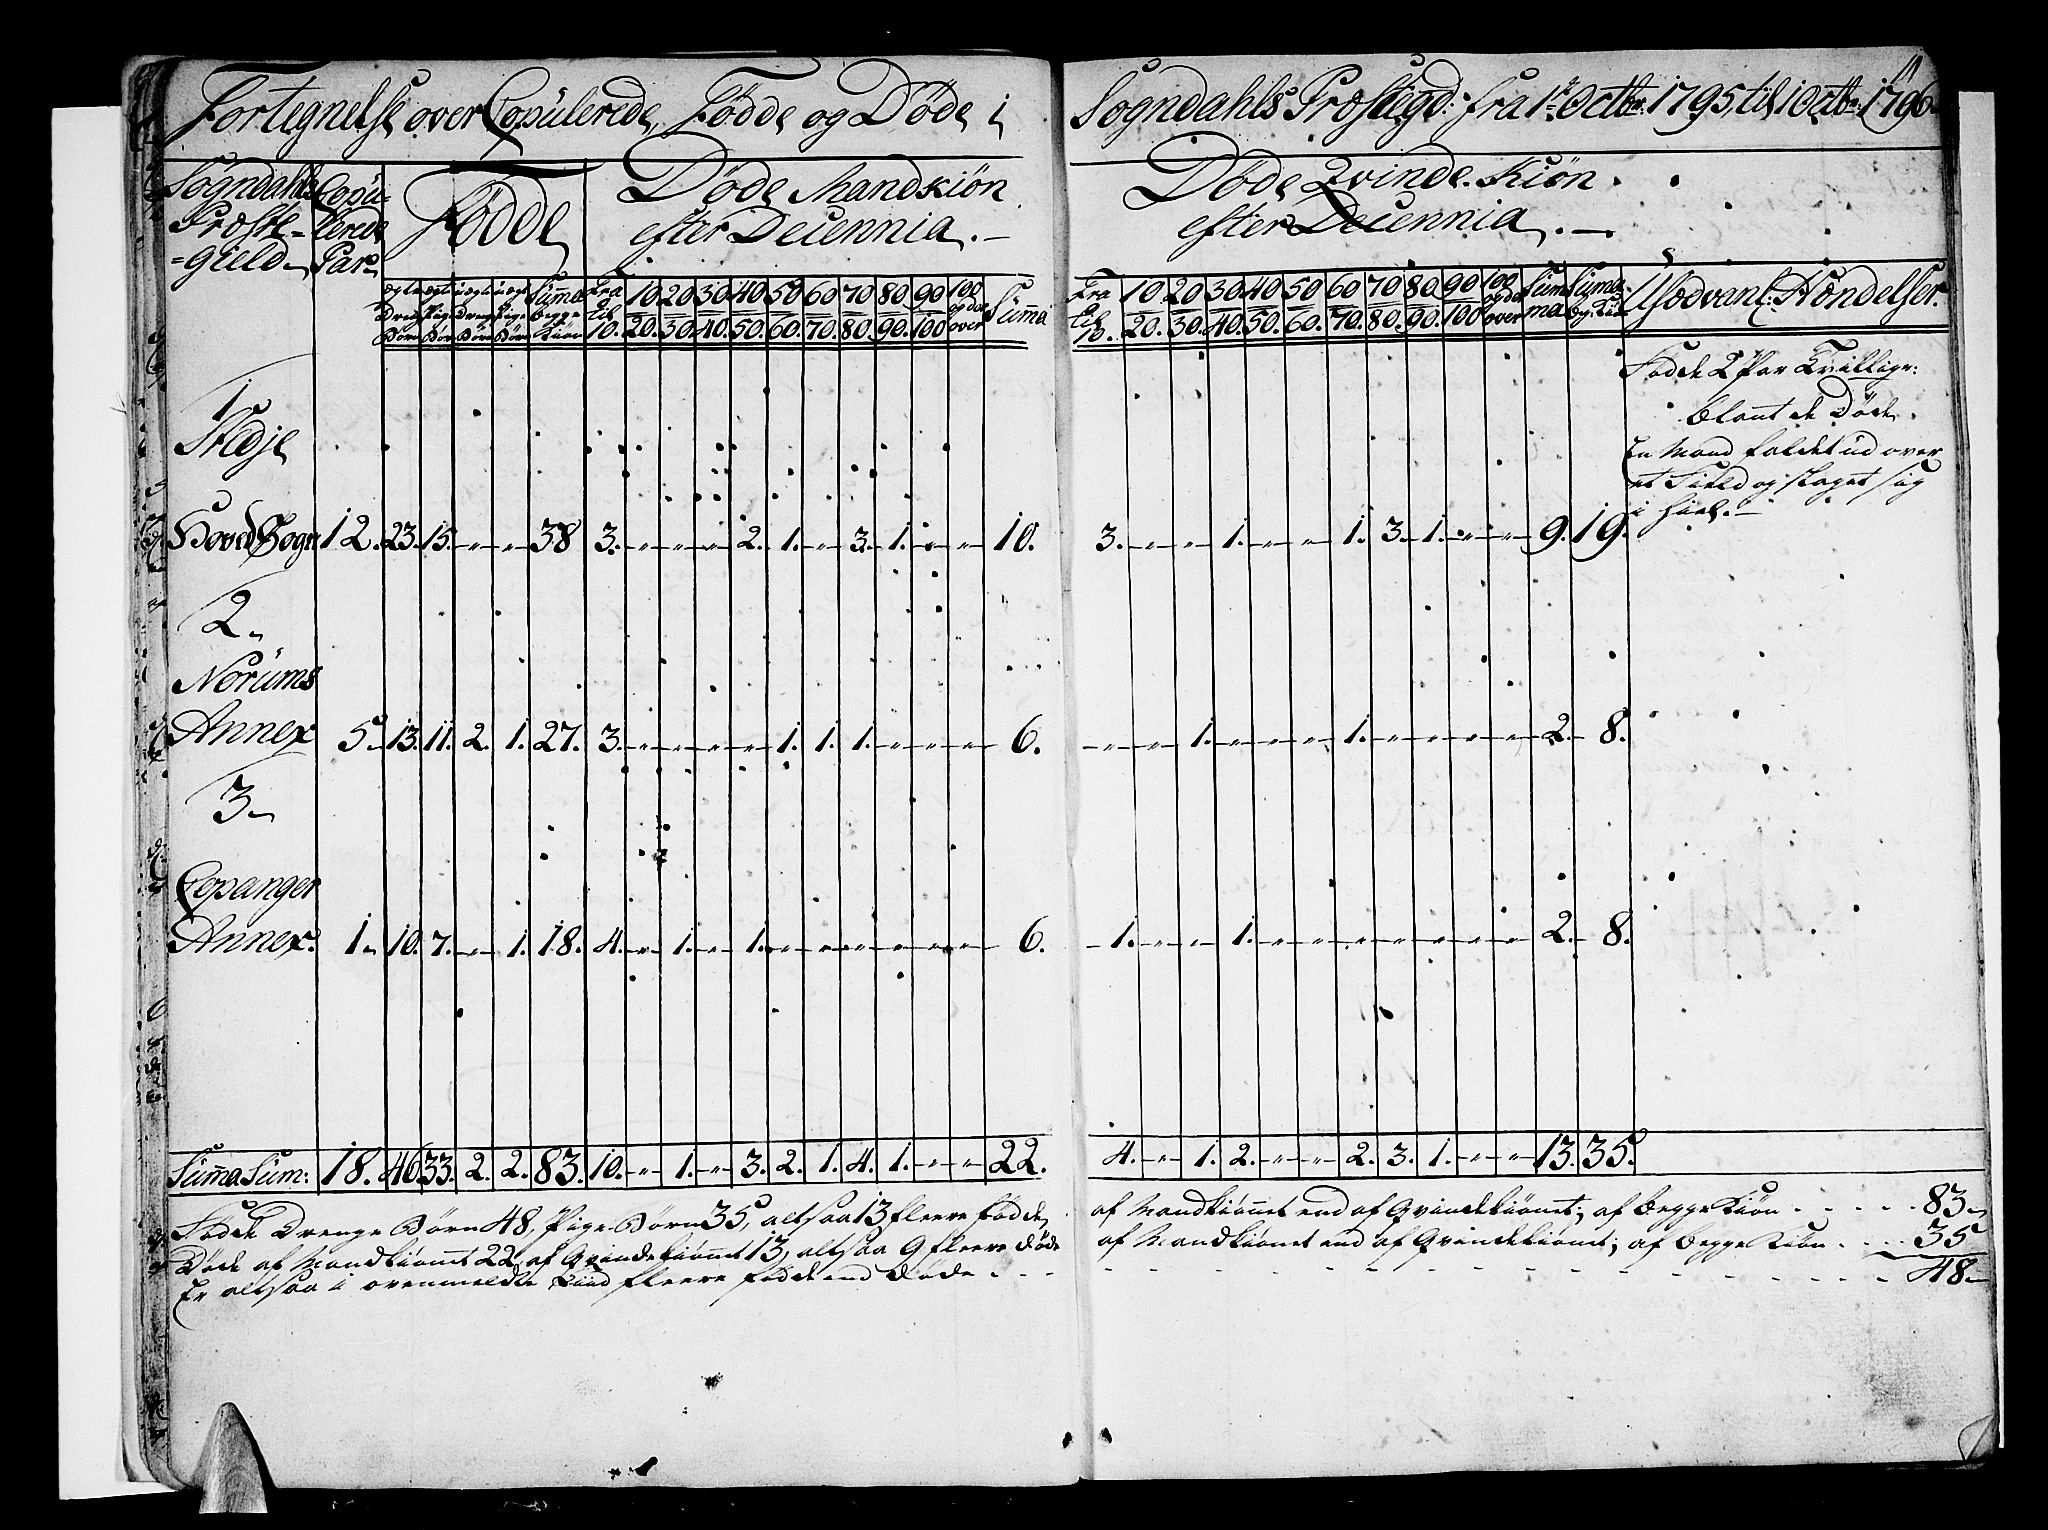 11
Fortegnelse over Copülerede, Fødde og Døde i Sogndahls Præstegd: fra 1ste Octbr: 1795, til 1 Octbr: 1796
Sogndahls Præste=gield
Copülerede Par
Fødde
Døde Mandkiøn efter Decennia.
Døde Qvinde-Kiøn efter Decennia.
ægte Dreng Børn
ægte Pige Børn
uægte Dreng Børn
uægte Pige Børn
Sum̄a begge Kiøn
Fra til 10. 10/20. 20/30. 30/40. 40/50. 50/60. 60/70. 70/80. 80/90. 90/100 100 og der over Sum̄a
Fra til 10. 10/20. 20/30. 30/40. 40/50. 50/60. 60/70. 70/80. 80/90. 90/100 100 og der over Sum̄a Sum̄a Usædvanl: Hændelser.
1
Stedje
HovedSogn 12. 23. 15. - - 38 3. - - - 2. 1. - 3. 1. - - 10. 3. - - 1. - - 1. 3. 1. - - 9. 19.
Fødde 2 Par Tvillinger:
Blant de Døde.
En Mand faldet ud over
et Field og slaget sig
i hiel.
2
Norums
Annex 5 13. 11. 2. 1. 27. 3. - - - - 1. 1. 1. - - - 6. - - 1. - - - 1. - - - - 2. 8.
3
Copanger
Annex. 1 10. 7. - 1. 18. 4. - 1. - 1. - - - - - - 6. 1. - - 1. - - - - - - - 2. 8.
Sum̄a Sum: 18. 46 33. 2. 2. 83. 10. - 1. - 3. 2. 1. 4. 1. - - 22. 4. - 1. 2. - - 2. 3. 1. - - 13. 35.
Fødde Drenge Børn 48, Pige-Børn 35, altsaa 13 fleere fødde af Mandkiønnet end af Qvindekiønnet; af begge Kiøn 83
Døde af Mandkiønnet 22, af Qvindekiønnet 13, altsaa 9 fleere døde af Mandkiønnet end af Qvindekiønnet; af begge Kiøn 35
Er altsaa i ovenmeldte Tiid fleere fødde end døde 48